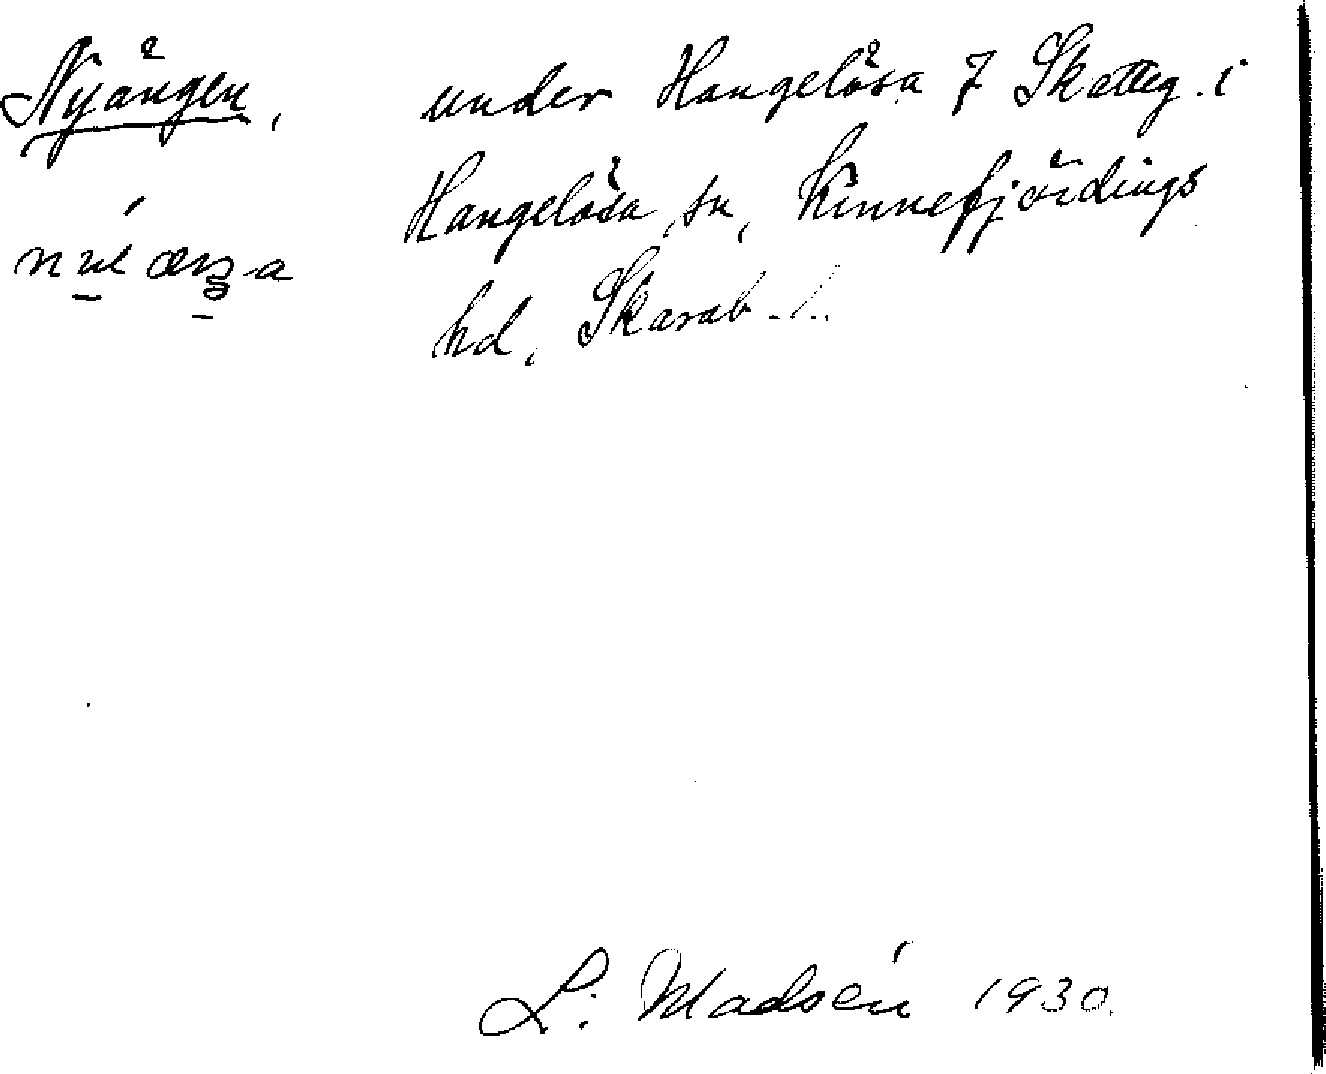 Nyängen, under Hangelösa 7 Skatteg. i
Hangelösa sn, Kinnefjärdings
hd, Skarab. l.
L. Madsén 1930.